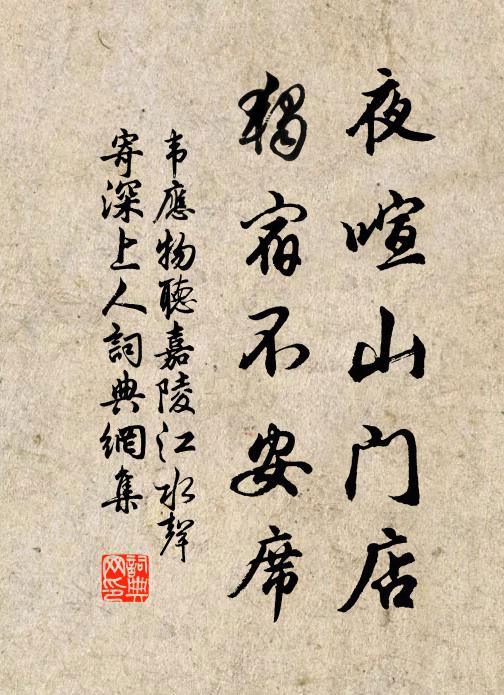 夜喧山門店
獨宿不安席
韦應物聽嘉陵江水聲
寄深上人詞典網集
詞典
网印